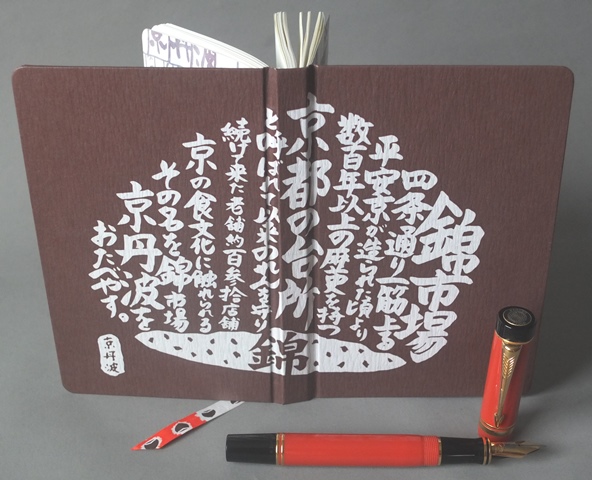 錦市場
四条通り一筋上る
平安京が造られた頃より
数百年以上の歴史を持つ
京都の台所
と呼ばれて以来のれんを守り
続けて来た老舗約百参拾店舗
京の食文化に触れられる
その名を錦市場
京丹波を
おたべやす。
錦
京丹波